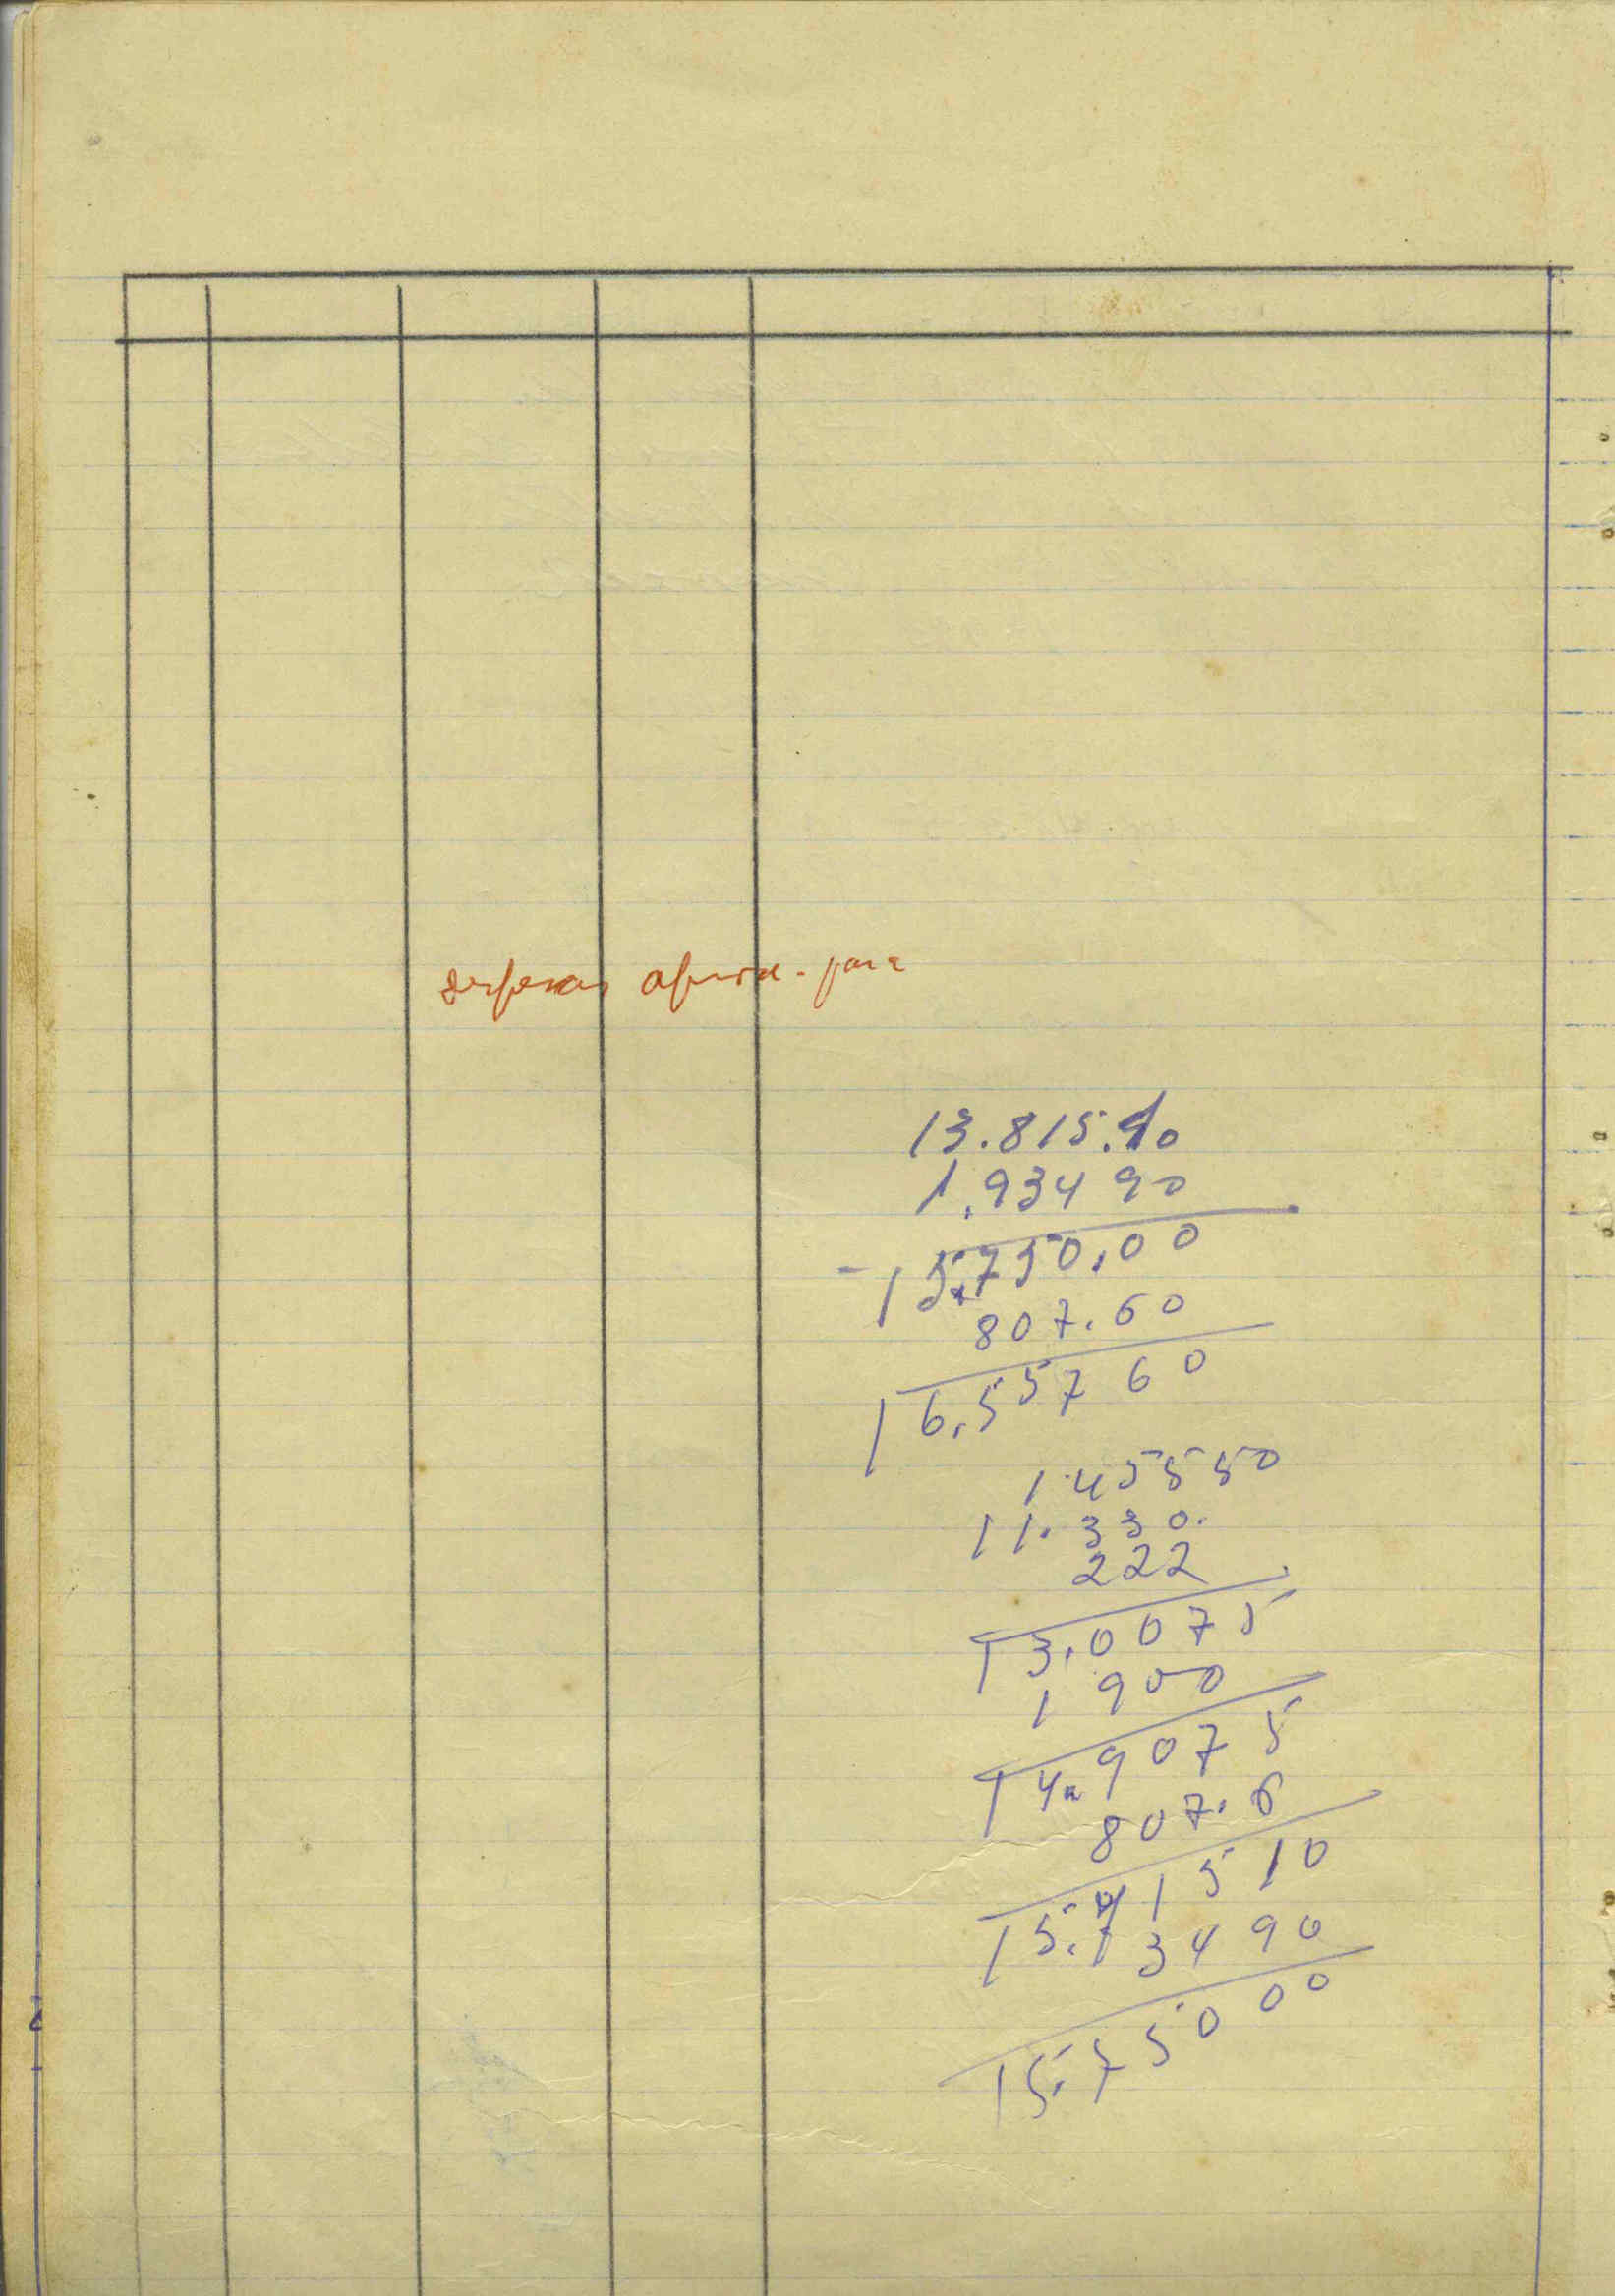 despesas para
13.815.10
1.934 90
- 15.750.00
807.60
16.557 60
1.455 50
11.330.
222
13.007 5
1 900
14.907 5
807.6
15.71510
3490
15.75000